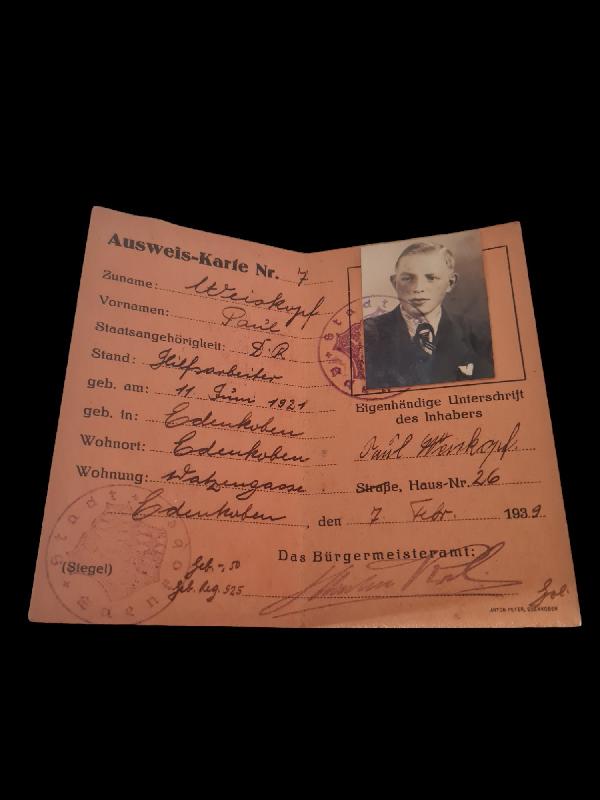 Ausweis-Karte Nr. 7
Zuname: Weiskopf
Vornamen: Paul
Staatsangehörigkeit: D.R.
Stand: Hilfsarbeiter
geb. am: 11 Juni 1921
geb. in: Edenkoben
Wohnort: Edenkoben
Wohnung: Watzengasse
Eigenhändige Unterschrift
des Inhabers
Paul Weiskopf.
Straße, Haus-Nr. 26
Edenkoben, den 7 Febr. 1939
Das Bürgermeisteramt:
(Siegel)
Geb -,50
Geb. Reg. 525
ANTON PETER, EDENKOBEN
Stadt
Stadt